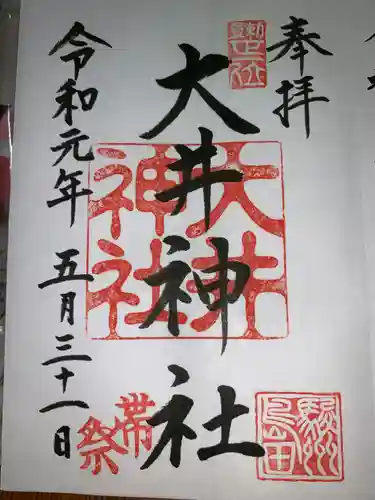 奉拝
大井神社
大井
神社
帯祭
令和元年 五月三十一日